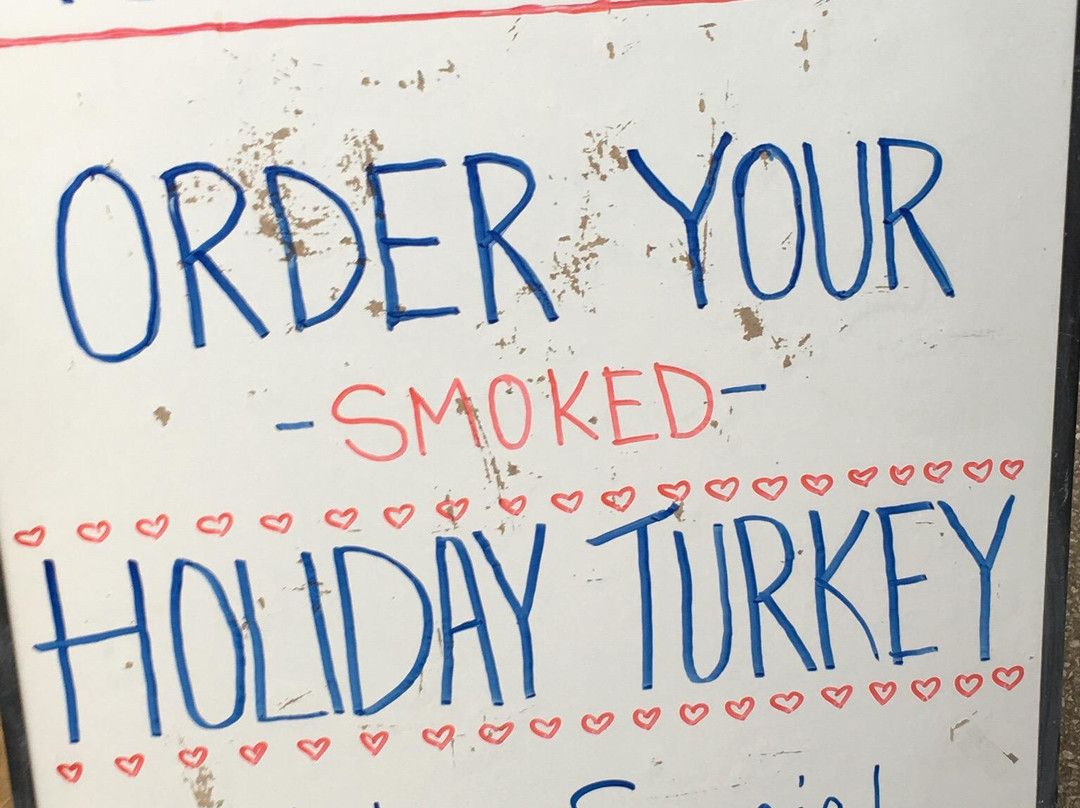 ORDER YOUR
-SMOKED-
HOLIDAY TURKEY